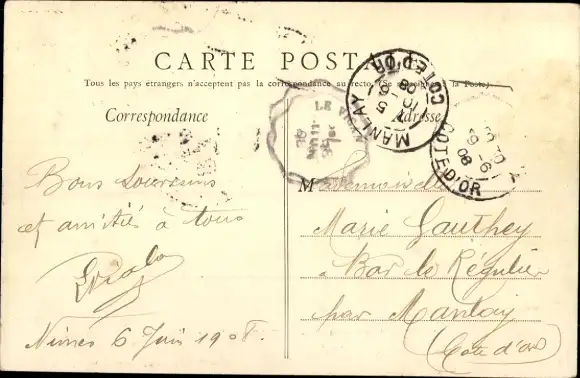 CARTE POSTALE
Tous les pays étrangers n'acceptent pas la correspondance au recto (Se renseigner à la Poste)
Correspondance
Adresse
MANLAY
COTE D'OR
COTE D'OR
08
LE
Bons souvenirs
et amitiés à tous
Nîmes 6 Juin 1908.
Mademoiselle
Marie Gauthey
à Bar le Régulier
par Manlay
(Côte d'or)